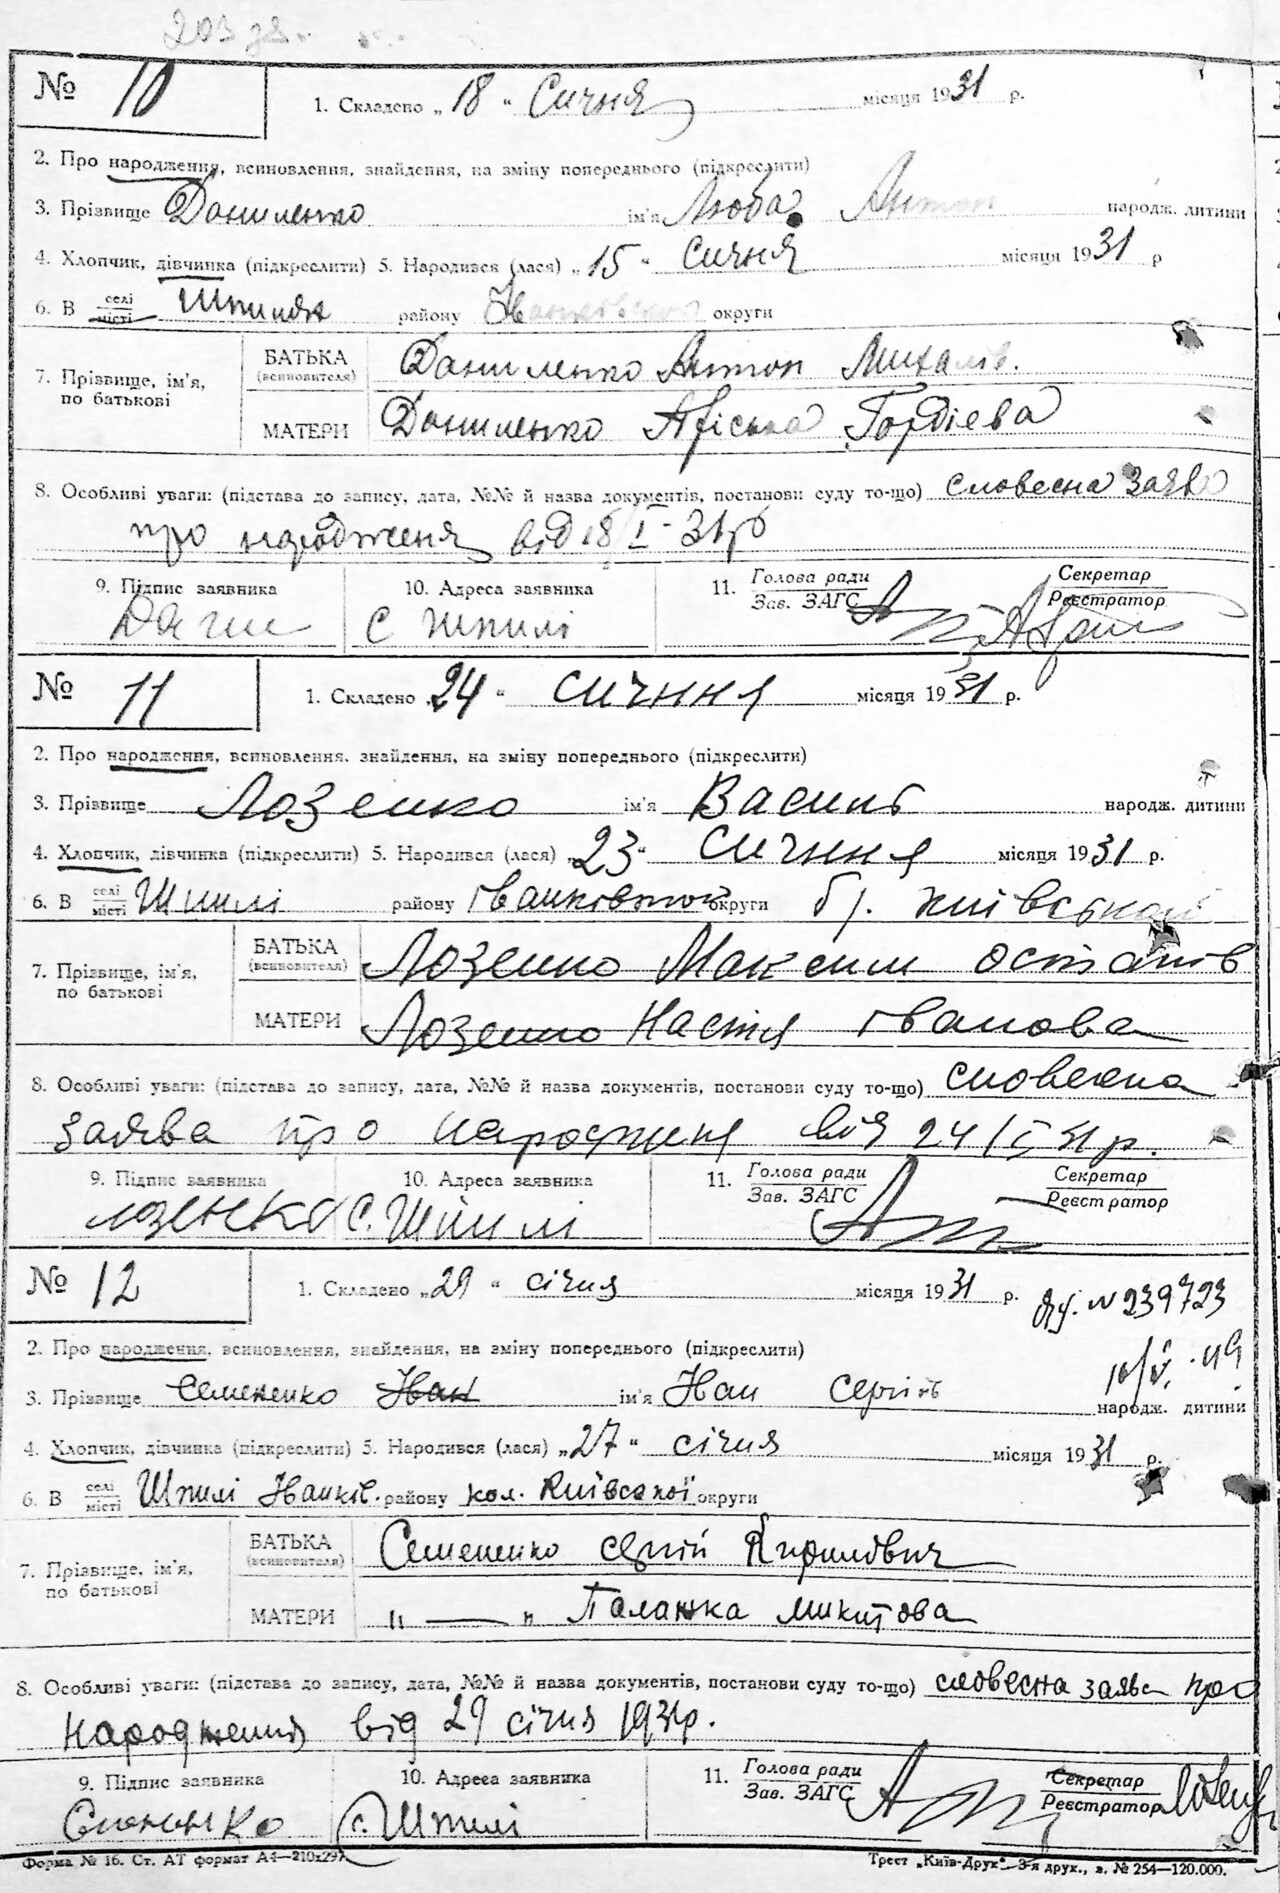 203 зв.
№ 10
1. Складено „18“ Сичня місяця 1931 р.
2. Про народження, всиновлення, знайдення, на зміну попереднього (підкреслити)
3. Прізвище Даниленко ім'я Люба Антон народж. дитини
4. Хлопчик, дівчинка (підкреслити) 5. Народився (лася) „15“ Сичня місяця 1931 р
6. В селі/місті Шпилях району Іванковского округи
7. Прізвище, ім'я, по батькові
БАТЬКА (всиновителя) Даниленко Антон Михалів.
МАТЕРИ Даниленко Афіська Гордіева
8. Особливі уваги: (підстава до запису, дата, №№ й назва документів, постанови суду то-що) словесна заява
про народженя від 18/I-31р
9. Підпис заявника 10. Адреса заявника 11. Голова ради Зав. ЗАГС Секретар Реєстратор
с Шпилі
№ 11
1. Складено 24“ сичння місяця 1931 р.
2. Про народження, всиновлення, знайдення, на зміну попереднього (підкреслити)
3. Прізвище Лозенко ім'я Василь народж. дитини
4. Хлопчик, дівчинка (підкреслити) 5. Народився (лася) „23“ сичння місяця 1931 р.
6. В селі/місті Шпилі району Іванковской округи б/. Київськой
7. Прізвище, ім'я, по батькові
БАТЬКА (всиновителя) Лозенко Максим Остапів
МАТЕРИ Лозенко Настя Іванова
8. Особливі уваги: (підстава до запису, дата, №№ й назва документів, постанови суду то-що) словесна
заява про народженя від 24/I 31р.
9. Підпис заявника 10. Адреса заявника 11. Голова ради Зав. ЗАГС Секретар Реєстратор
лозенко с. Шпилі
№ 12
1. Складено „29“ січня місяця 1931 р.
№ 239723
10/V. 49
2. Про народження, всиновлення, знайдення, на зміну попереднього (підкреслити)
3. Прізвище Семененко Іван ім'я Іван Сергіїв народж. дитини
4. Хлопчик, дівчинка (підкреслити) 5. Народився (лася) „27“ січня місяця 1931 р.
6. В селі/місті Шпилі Іванків. району кол. Київської округи
7. Прізвище, ім'я, по батькові
БАТЬКА (всиновителя) Семененко Сергій Кирилович
МАТЕРИ „ — „ Палажка Микитова
8. Особливі уваги: (підстава до запису, дата, №№ й назва документів, постанови суду то-що) словесна заява про
народження від 29 січня 1931р.
9. Підпис заявника 10. Адреса заявника 11. Голова ради Зав. ЗАГС Секретар Реєстратор
с. Шпилі
Форма № 16. Ст. АТ формат А4—210x297 Трест „Київ-Друк“ 3-я друк., з. № 254—120.000.